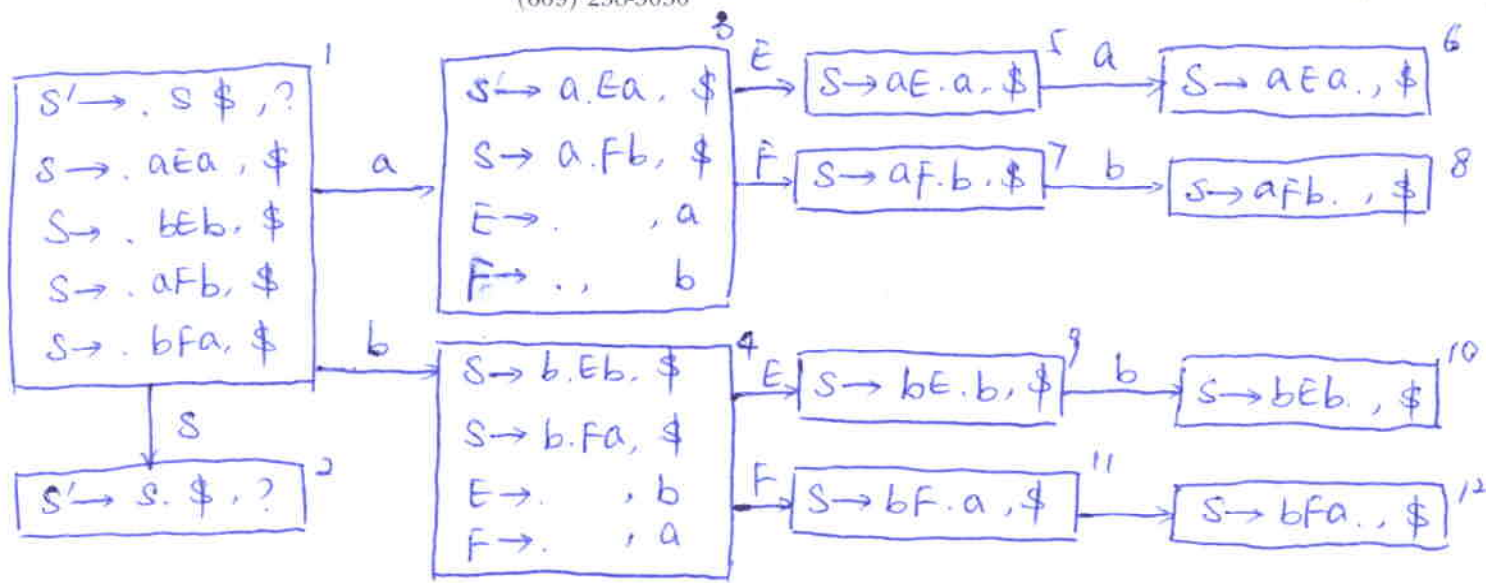 S' → . S $ , ?
S → . aEa , $
S → . bEb, $
S → . aFb, $
S → . bFa, $
1
a
b
S
S' → S. $ , ?
2
S' → a.Ea, $
S → a.Fb, $
E → . , a
F → . , b
3
E
S → aE.a, $
5
a
S → aEa., $
6
F
S → aF.b, $
7
b
S → aFb. , $
8
S → b.Eb, $
S → b.Fa, $
E → . , b
F → . , a
4
E
S → bE.b, $
9
b
S → bEb. , $
10
F
S → bF.a , $
11
S → bFa. , $
12